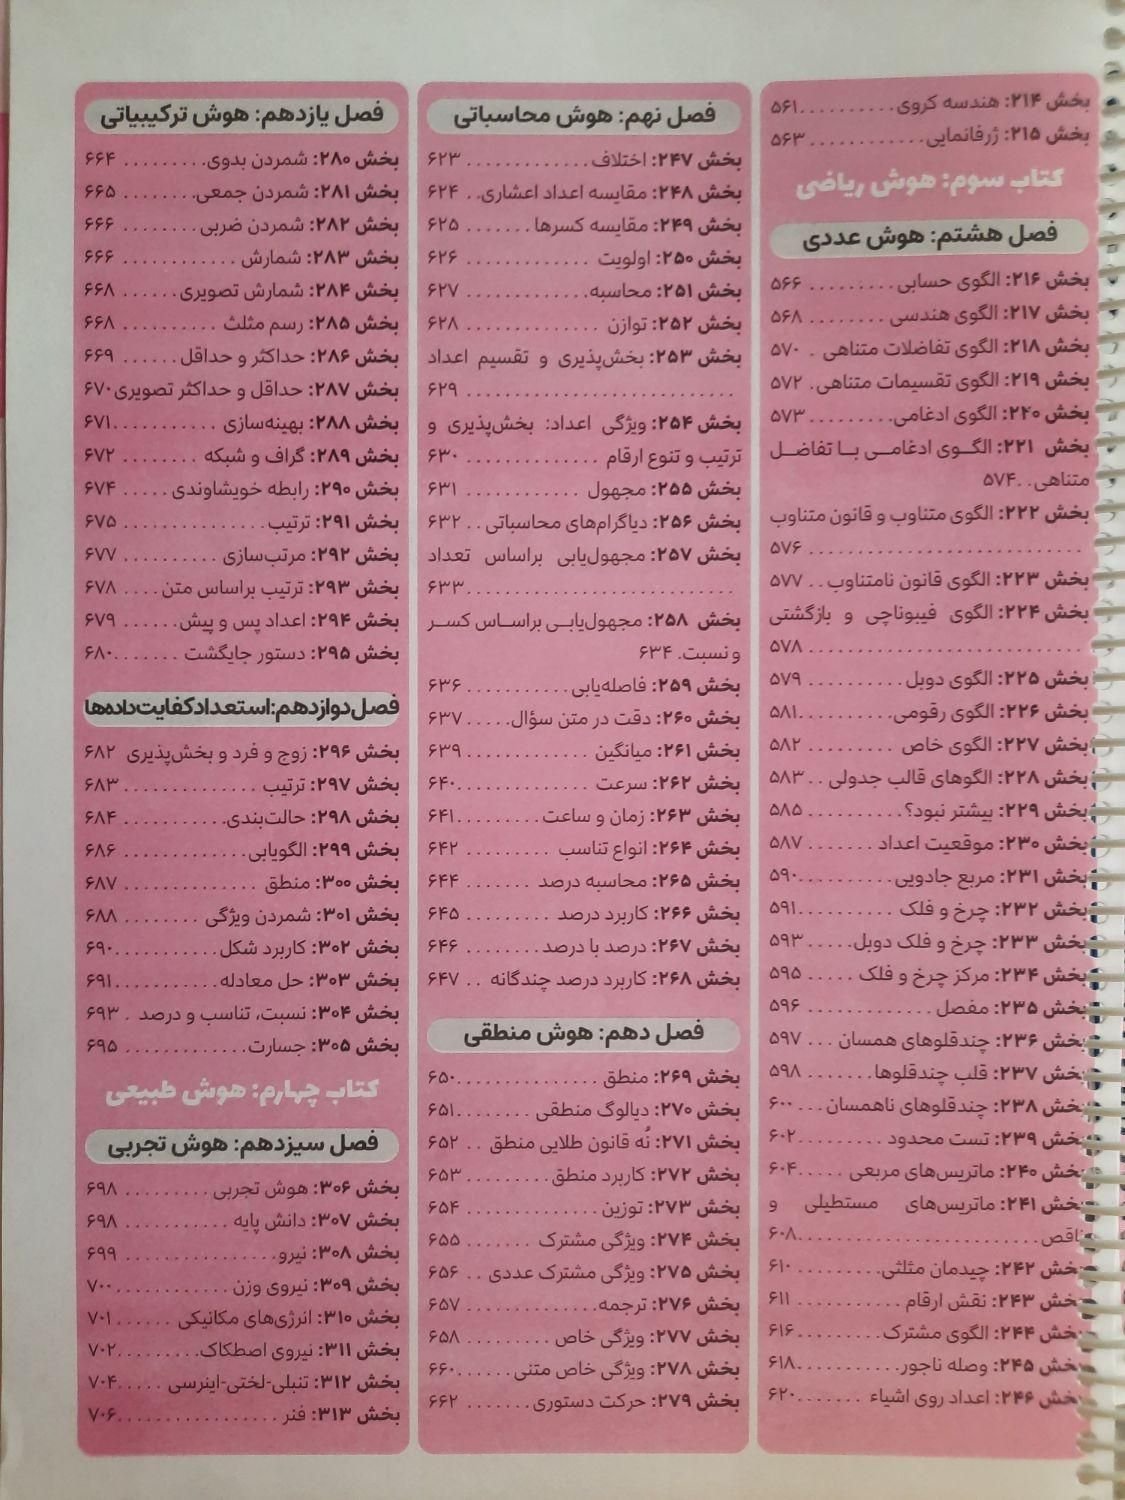 بخش ۲۱۴: هندسه کروی..........۵۶۱
بخش ۲۱۵: ژرفانمایی............۵۶۳
کتاب سوم: هوش ریاضی
فصل هشتم: هوش عددی
بخش ۲۱۶: الگوی حسابی.........۵۶۶
بخش ۲۱۷: الگوی هندسی........۵۶۸
بخش ۲۱۸: الگوی تفاضلات متناهی .۵۷۰
بخش ۲۱۹: الگوی تقسیمات متناهی.۵۷۲
بخش ۲۲۰: الگوی ادغامی.........۵۷۳
بخش ۲۲۱: الگوی ادغامی با تفاضل
متناهی...۵۷۴
بخش ۲۲۲: الگوی متناوب و قانون متناوب
...........................۵۷۶
بخش ۲۲۳: الگوی قانون نامتناوب..۵۷۷
بخش ۲۲۴: الگوی فیبوناچی و بازگشتی
...........................۵۷۸
بخش ۲۲۵: الگوی دوبل..........۵۷۹
بخش ۲۲۶: الگوی رقومی..........۵۸۱
بخش ۲۲۷: الگوی خاص .........۵۸۲
بخش ۲۲۸: الگوهای قالب جدولی ..۵۸۳
بخش ۲۲۹: بیشتر نبود؟..........۵۸۵
بخش ۲۳۰: موقعیت اعداد.......۵۸۷
بخش ۲۳۱: مربع جادویی..........۵۹۰
بخش ۲۳۲: چرخ و فلک ..........۵۹۱
بخش ۲۳۳: چرخ و فلک دوبل.....۵۹۳
بخش ۲۳۴: مرکز چرخ و فلک .....۵۹۵
بخش ۲۳۵: مفصل.............۵۹۶
بخش ۲۳۶: چندقلوهای همسان...۵۹۷
بخش ۲۳۷: قلب چندقلوها.......۵۹۸
بخش ۲۳۸: چندقلوهای ناهمسان...۶۰۰
بخش ۲۳۹: تست محدود.........۶۰۲
بخش ۲۴۰: ماتریس‌های مربعی.....۶۰۴
بخش ۲۴۱: ماتریس‌های مستطیلی و
ناقص........................۶۰۸
بخش ۲۴۲: چیدمان مثلثی.........۶۱۰
بخش ۲۴۳: نقش ارقام...........۶۱۱
بخش ۲۴۴: الگوی مشترک.........۶۱۶
بخش ۲۴۵: وصله ناجور...........۶۱۸
بخش ۲۴۶: اعداد روی اشیاء.......۶۲۰
فصل نهم: هوش محاسباتی
بخش ۲۴۷: اختلاف.............۶۲۳
بخش ۲۴۸: مقایسه اعداد اعشاری..۶۲۴
بخش ۲۴۹: مقایسه کسرها.......۶۲۵
بخش ۲۵۰: اولویت.............۶۲۶
بخش ۲۵۱: محاسبه.............۶۲۷
بخش ۲۵۲: توازن..............۶۲۸
بخش ۲۵۳: بخش‌پذیری و تقسیم اعداد
...........................۶۲۹
بخش ۲۵۴: ویژگی اعداد: بخش‌پذیری و
ترتیب و تنوع ارقام.............۶۳۰
بخش ۲۵۵: مجهول............۶۳۱
بخش ۲۵۶: دیاگرام‌های محاسباتی..۶۳۲
بخش ۲۵۷: مجهول‌یابی براساس تعداد
...........................۶۳۳
بخش ۲۵۸: مجهول‌یابی براساس کسر
و نسبت.۶۳۴
بخش ۲۵۹: فاصله‌یابی...........۶۳۶
بخش ۲۶۰: دقت در متن سؤال.....۶۳۷
بخش ۲۶۱: میانگین............۶۳۹
بخش ۲۶۲: سرعت..............۶۴۰
بخش ۲۶۳: زمان و ساعت.........۶۴۱
بخش ۲۶۴: انواع تناسب.........۶۴۲
بخش ۲۶۵: محاسبه درصد.......۶۴۴
بخش ۲۶۶: کاربرد درصد.........۶۴۵
بخش ۲۶۷: درصد با درصد........۶۴۶
بخش ۲۶۸: کاربرد درصد چندگانه ..۶۴۷
فصل دهم: هوش منطقی
بخش ۲۶۹: منطق..............۶۵۰
بخش ۲۷۰: دیالوگ منطقی........۶۵۱
بخش ۲۷۱: نُه قانون طلایی منطق ..۶۵۲
بخش ۲۷۲: کاربرد منطق.........۶۵۳
بخش ۲۷۳: توزین.............۶۵۴
بخش ۲۷۴: ویژگی مشترک.......۶۵۵
بخش ۲۷۵: ویژگی مشترک عددی ..۶۵۶
بخش ۲۷۶: ترجمه.............۶۵۷
بخش ۲۷۷: ویژگی خاص.........۶۵۸
بخش ۲۷۸: ویژگی خاص متنی......۶۶۰
بخش ۲۷۹: حرکت دستوری.......۶۶۲
فصل یازدهم: هوش ترکیبیاتی
بخش ۲۸۰: شمردن بدوی.........۶۶۴
بخش ۲۸۱: شمردن جمعی........۶۶۵
بخش ۲۸۲: شمردن ضربی........۶۶۶
بخش ۲۸۳: شمارش............۶۶۶
بخش ۲۸۴: شمارش تصویری......۶۶۸
بخش ۲۸۵: رسم مثلث..........۶۶۸
بخش ۲۸۶: حداکثر و حداقل......۶۶۹
بخش ۲۸۷: حداقل و حداکثر تصویری۶۷۰
بخش ۲۸۸: بهینه‌سازی...........۶۷۱
بخش ۲۸۹: گراف و شبکه........۶۷۲
بخش ۲۹۰: رابطه خویشاوندی.....۶۷۴
بخش ۲۹۱: ترتیب..............۶۷۵
بخش ۲۹۲: مرتب‌سازی..........۶۷۷
بخش ۲۹۳: ترتیب براساس متن....۶۷۸
بخش ۲۹۴: اعداد پس و پیش......۶۷۹
بخش ۲۹۵: دستور جایگشت.......۶۸۰
فصل دوازدهم: استعداد کفایت داده‌ها
بخش ۲۹۶: زوج و فرد و بخش‌پذیری ۶۸۲
بخش ۲۹۷: ترتیب.............۶۸۳
بخش ۲۹۸: حالت‌بندی...........۶۸۴
بخش ۲۹۹: الگویابی............۶۸۶
بخش ۳۰۰: منطق.............۶۸۷
بخش ۳۰۱: شمردن ویژگی........۶۸۸
بخش ۳۰۲: کاربرد شکل..........۶۹۰
بخش ۳۰۳: حل معادله...........۶۹۱
بخش ۳۰۴: نسبت، تناسب و درصد .۶۹۳
بخش ۳۰۵: جسارت............۶۹۵
کتاب چهارم: هوش طبیعی
فصل سیزدهم: هوش تجربی
بخش ۳۰۶: هوش تجربی.........۶۹۸
بخش ۳۰۷: دانش پایه...........۶۹۸
بخش ۳۰۸: نیرو...............۶۹۹
بخش ۳۰۹: نیروی وزن...........۷۰۰
بخش ۳۱۰: انرژی‌های مکانیکی......۷۰۱
بخش ۳۱۱: نیروی اصطکاک.........۷۰۲
بخش ۳۱۲: تنبلی-لختی-اینرسی.....۷۰۴
بخش ۳۱۳: فنر.................۷۰۶